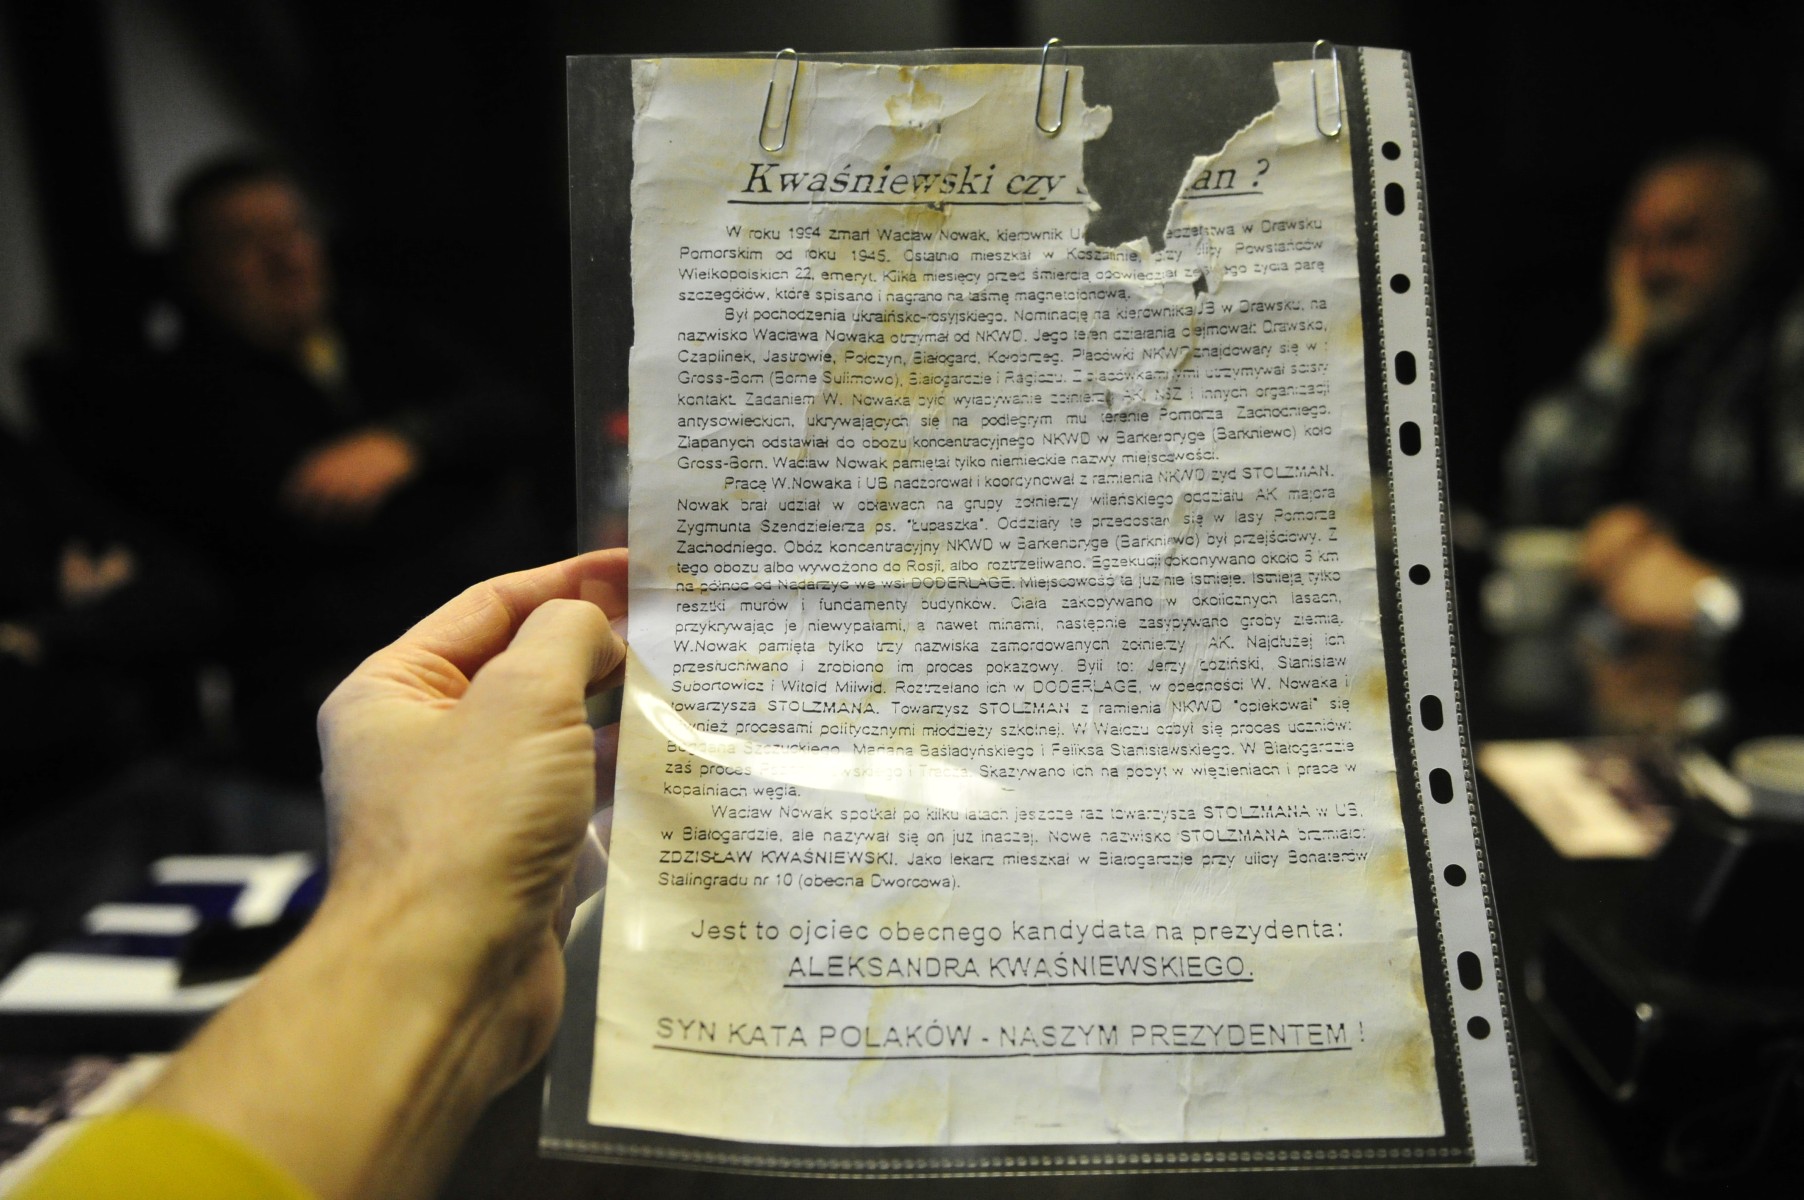 Kwaśniewski czy an ?
W roku 1994 zmarł Wacław Nowak, kierownik w Drawsku
Pomorskim od roku 1945. Ostatnio mieszkał w Koszalinie, przy ulicy Powstańców
Wielkopolskich 22, emeryt. Kilka miesięcy przed śmiercią opowiedział ze życia parę
szczegółów, które spisano i nagrano na taśmę magnetofonową.
Był pochodzenia ukraińsko-rosyjskiego. Nominację na kierownika UB w Drawsku, na
nazwisko Wacława Nowaka otrzymał od NKWD. Jego teren działania obejmował: Drawsko,
Czaplinek, Jastrowie, Połczyn, Białogard, Kołobrzeg. Placówki NKWD znajdowały się w :
Gross-Born (Borne Sulimowo), Białogardzie i Z placówkami tymi utrzymywał ścisły
kontakt. Zadaniem W. Nowaka było wyłapywanie żołnierzy AK, NSZ i innych organizacji
antysowieckich, ukrywających się na podległym mu terenie Pomorza Zachodniego.
Złapanych odstawiał do obozu koncentracyjnego NKWD w Barkenbryge (Barkniewo) koło
Gross-Born. Wacław Nowak pamiętał tylko niemieckie nazwy miejscowości.
Pracę W.Nowaka i UB nadzorował i koordynował z ramienia NKWD żyd STOLZMAN.
Nowak brał udział w obławach na grupy żołnierzy wileńskiego oddziału AK majora
Zygmunta Szendzielerza ps. "Łupaszka". Oddziały te przedostały się w lasy Pomorza
Zachodniego. Obóz koncentracyjny NKWD w Barkenbryge (Barkniewo) był przejściowy. Z
tego obozu albo wywożono do Rosji, albo roztrzeliwano. Egzekucji dokonywano około 5 km
na północ od Nadarzyc we wsi DODERLAGE. Miejscowość ta już nie istnieje. Istnieją tylko
resztki murów i fundamenty budynków. Ciała zakopywano w okolicznych lasach,
przykrywając je niewypałami, a nawet minami, następnie zasypywano groby ziemią.
W.Nowak pamięta tylko trzy nazwiska zamordowanych żołnierzy AK. Najdłużej ich
przesłuchiwano i zrobiono im proces pokazowy. Byli to: Jerzy Łoziński, Stanisław
Subortowicz i Witold Milwid. Rozstrzelano ich w DODERLAGE, w obecności W. Nowaka i
towarzysza STOLZMANA. Towarzysz STOLZMAN z ramienia NKWD "opiekował" się
również procesami politycznymi młodzieży szkolnej. W Wałczu odbył się proces uczniów:
Bogdana Szczuckiego, Mariana Baśladyńskiego i Feliksa Stanisławskiego. W Białogardzie
zaś proces i Tracza. Skazywano ich na pobyt w więzieniach i prace w
kopalniach węgla.
Wacław Nowak spotkał po kilku latach jeszcze raz towarzysza STOLZMANA w UB,
w Białogardzie, ale nazywał się on już inaczej. Nowe nazwisko STOLZMANA brzmiało:
ZDZISŁAW KWAŚNIEWSKI. Jako lekarz mieszkał w Białogardzie przy ulicy Bohaterów
Stalingradu nr 10 (obecna Dworcowa).
Jest to ojciec obecnego kandydata na prezydenta:
ALEKSANDRA KWAŚNIEWSKIEGO.
SYN KATA POLAKÓW - NASZYM PREZYDENTEM !